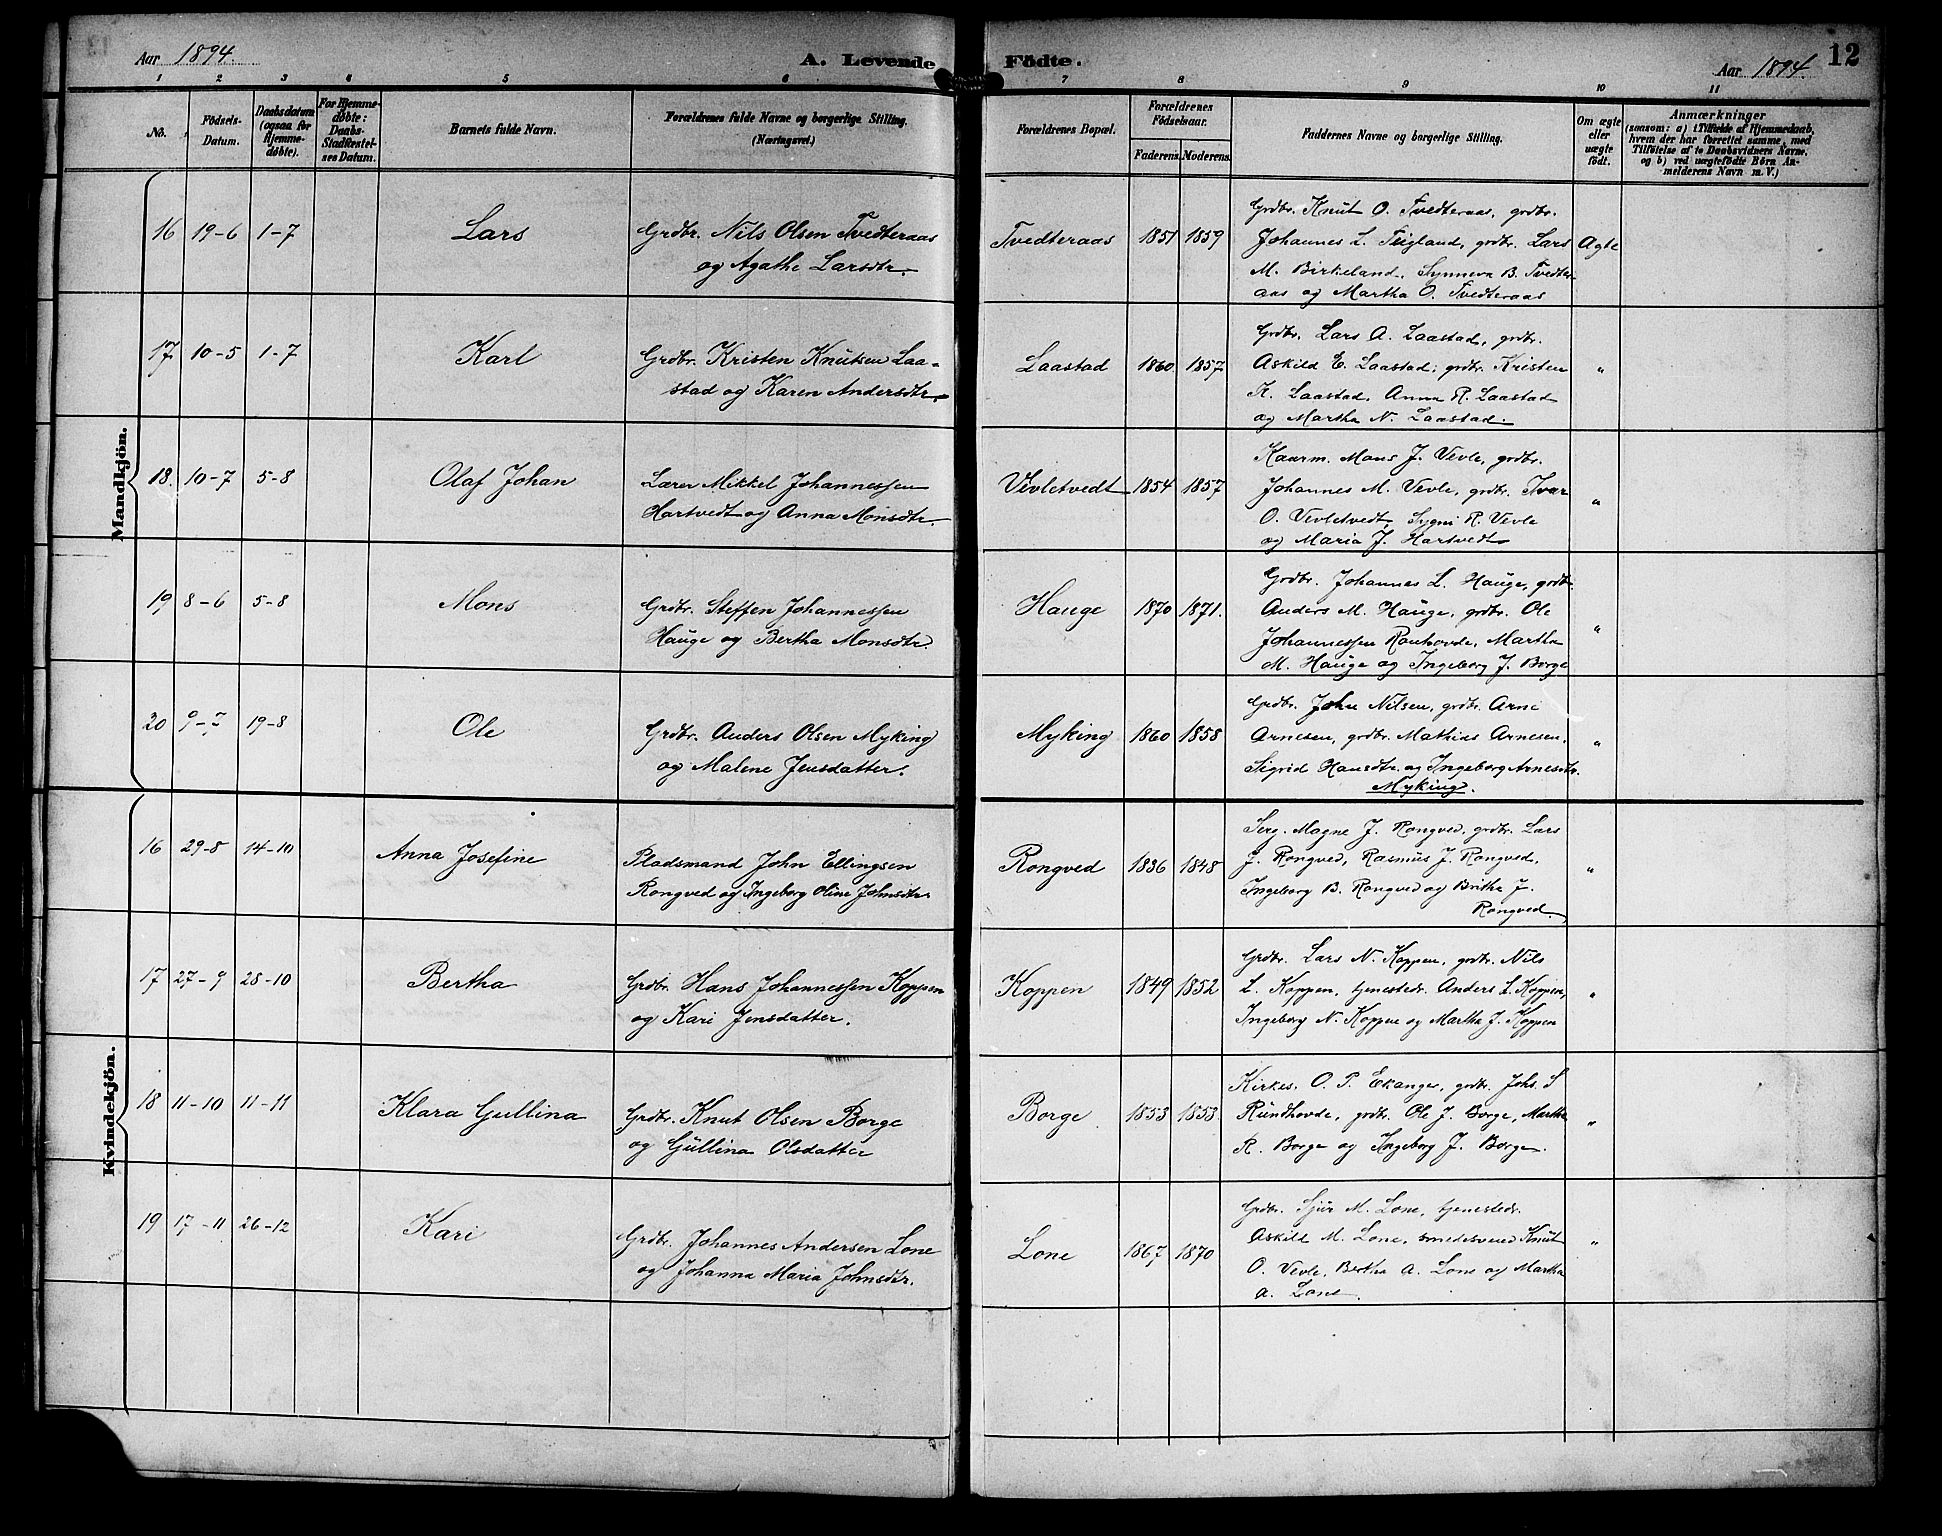 Aar 1894.
A. Levende Födte.
Aar 1894.
12
1 2 3 6 5 6 7 8 9 10 11
No.
Födsels-
Datum.
Daabsdatum
(ogsaa for
Hjemme-
døbte).
For Hjemme-
døbte:
Daabs-
Stadfæstel-
ses Datum.
Barnets fulde Navn.
Forældrenes fulde Navne og borgerlige Stilling.
(Næringsvei.)
Forældrenes Bopæl.
Forældrenes
Födselsaar.
Faderens. Moderens.
Faddernes Navne og borgerlige Stilling.
Om ægte
eller
uægte
födt.
Anmærkninger
(saasom: a) i Tilfælde af Hjemmedaab,
hvem der har forrettet samme, med
Tilföielse af to Daabsvidners Navne.
og b) ved uægtefödte Börn An-
melderens Navn m. V.)
Mandkjön.
16 19-6 1-7
Lars
Grdbr. Nils Olsen Tvedteraas
og Agathe Larsdtr.
Tvedteraas 1851 1859
Grdbr. Knut O. Tvedteraas, grdbr.
Johannes L. Teigland, grdbr. Lars
M. Birkeland, Synneva B. Tvedter-
aas og Martha O. Tvedteraas
Ægte
17 10-5 1-7
Karl
Grdbr. Kristen Knutsen Laa-
stad og Karen Andersdtr.
Laastad 1860. 1857
Grdbr. Lars A. Laastad, grdbr.
Askild E. Laastad, grdbr. Kristen
K. Laastad, Anna R. Laastad
og Martha N. Laastad.
"
18. 10-7 5-8
Olaf Johan
Lærer Mikkel Johannessen
Hartvedt og Anna Monsdtr.
Vevletvedt 1854 1857
Kaarm. Mons J. Vevle, grdbr.
Johannes M. Vevle, grdbr. Ivar
O. Vevletvedt, Sygni R. Vevle
og Maria J. Hartvedt
"
19 8-6 5-8
Mons
Grdbr. Steffen Johannessen
Hauge og Bertha Monsdtr.
Hauge 1870 1871.
Grdbr. Johannes L. Hauge, grdbr.
Anders M. Hauge, grdbr. Ole
Johannessen Rauhovde, Martha
M. Hauge og Ingeborg J. Borge
"
20 19-8
Ole
Grdbr. Anders Olsen Myking
og Malene Jensdatter.
Myking 1860 1858
Grdbr. John Nilsen, grdbr. Arne
Arnesen, grdbr. Mathias Arnesen,
Sigrid Hansdtr. og Ingeborg Arnesdtr.
Myking.
"
Kvindekjön.
16 29-8 14-10
Anna Josefine
Pladsmand John Ellingsen
Rongved og Ingeborg Oline Johnsdtr.
Rongved 1836 1848
Serg. Magne J. Rongved, grdbr. Lars
J. Rongved, Rasmus J. Rongved,
Ingeborg B. Rongved og Britha J.
Rongved.
"
17 27-9 28-10
Bertha
Grdbr. Hans Johannessen Koppen
og Kari Jensdatter.
Koppen 1849 1852
Grdbr. Lars N. Koppen, grdbr. Nils
L. Koppen, tjenestedr. Anders L. Koppen,
Ingeborg N. Koppen og Martha J. Koppen
"
18 11-10 11-11
Klara Gullina
Grdbr. Knut Olsen Borge
og Gullina Olsdatter
Borge 1853 1853
Kirkes. O. P. Ekanger, grdbr. Johs. S
Rundhovde, grdbr. Ole J. Borge, Martha
R. Borge og Ingeborg J. Borge.
"
19 17-11 26-12
Kari
Grdbr. Johannes Andersen Lone
og Johanna Maria Johnsdtr.
Lone 1867 1870
Grdbr. Sjur M. Lone, tjenestedr.
Askild M. Lone, smedesvend Knut
O. Vevle, Bertha A. Lone og Martha
A. Lone.
"